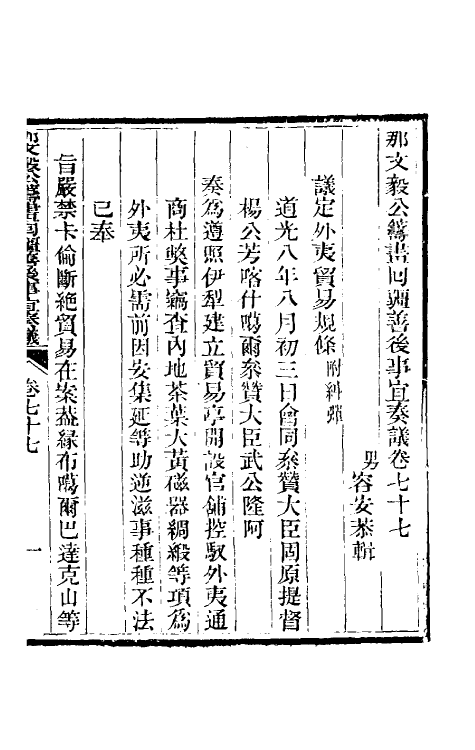 那文毅公籌畫回疆善後事宜奏議卷七十七
男容安恭輯
議定外夷貿易規條附糾彈
道光八年八月初三日會同叅贊大臣固原提督
楊公芳喀什噶爾叅贊大臣武公隆阿
奏為遵照伊犁建立貿易亭開設官舖控馭外夷通
商杜獘事竊查內地茶葉大黃磁器綢緞等項為
外夷所必需前因安集延等助逆滋事種種不法
已奉
旨嚴禁卡倫斷絶貿易在案葢緣布噶爾巴達克山等
那文毅公籌畫回疆善後事宜奏議
卷七十七
一